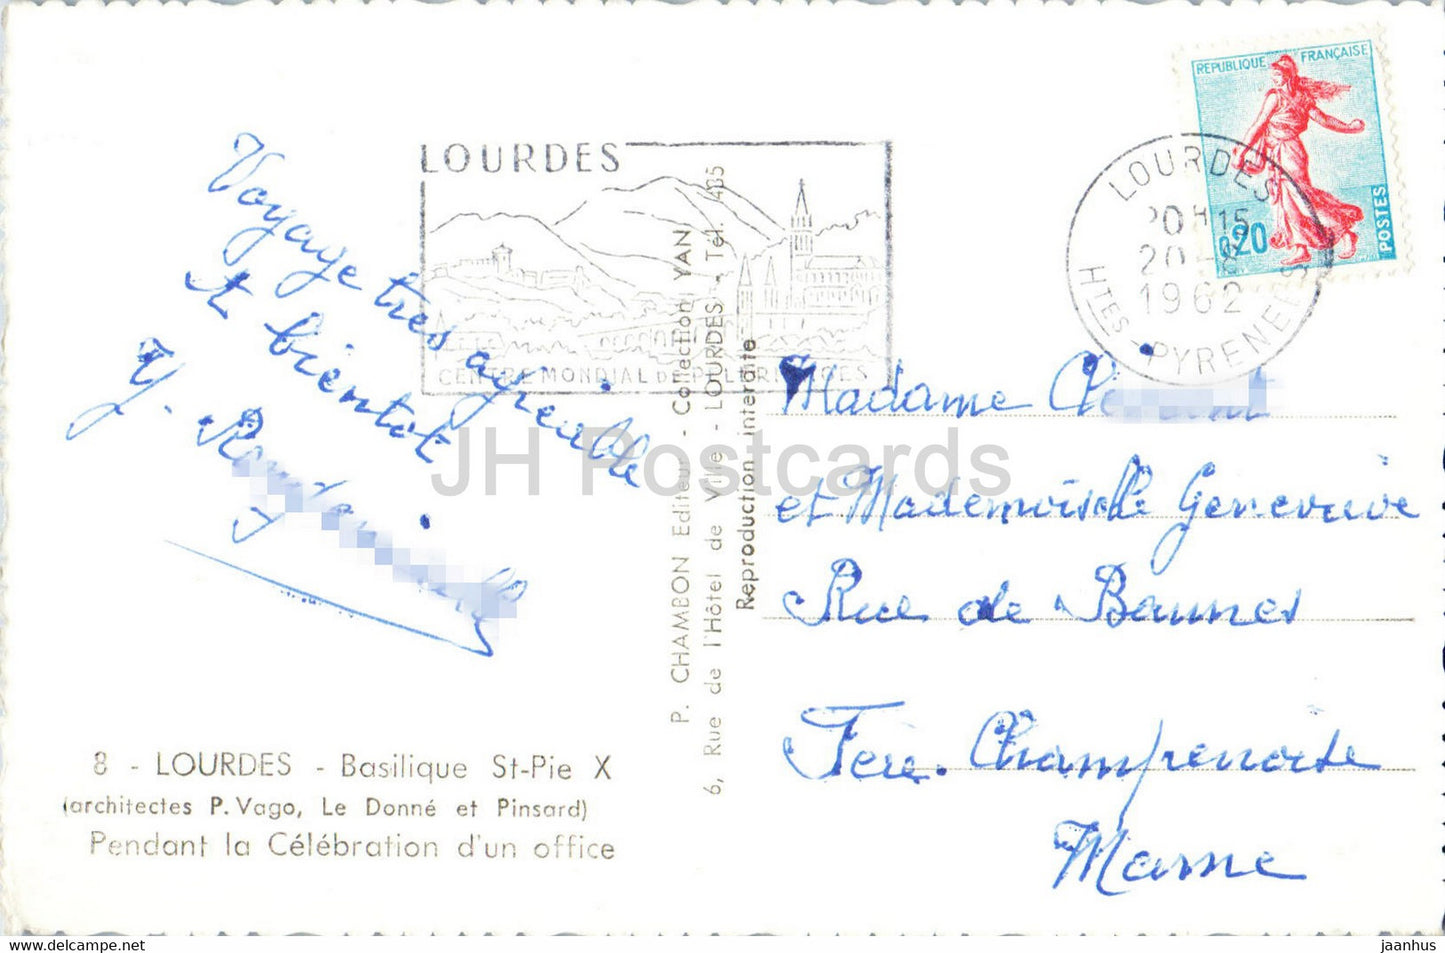 REPUBLIQUE FRANÇAISE
POSTES
0,20
LOURDES
20H15
20-8
1962
HTES-PYRENEES
LOURDES
CENTRE MONDIAL DE PELERINAGES
Voyage très agréable
A bientôt
Y.
Madame
et Mademoiselle Geneveuve
Rue de Bannes
Fère. Champenoise
Marne
P. CHAMBON Editeur - Collection YAN
6, Rue de l'Hôtel de Ville - LOURDES - Tél. 435
Reproduction interdite
8 - LOURDES - Basilique St-Pie X
(architectes P. Vago, Le Donné et Pinsard)
Pendant la Célébration d'un office
JH Postcards
www.delcampe.net
jaanhus